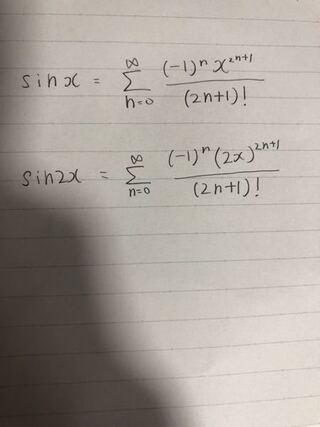 sin x = ∑_{n=0}^{∞} \frac{(-1)^n x^{2n+1}}{(2n+1)!}
sin2x = ∑_{n=0}^{∞} \frac{(-1)^n (2x)^{2n+1}}{(2n+1)!}